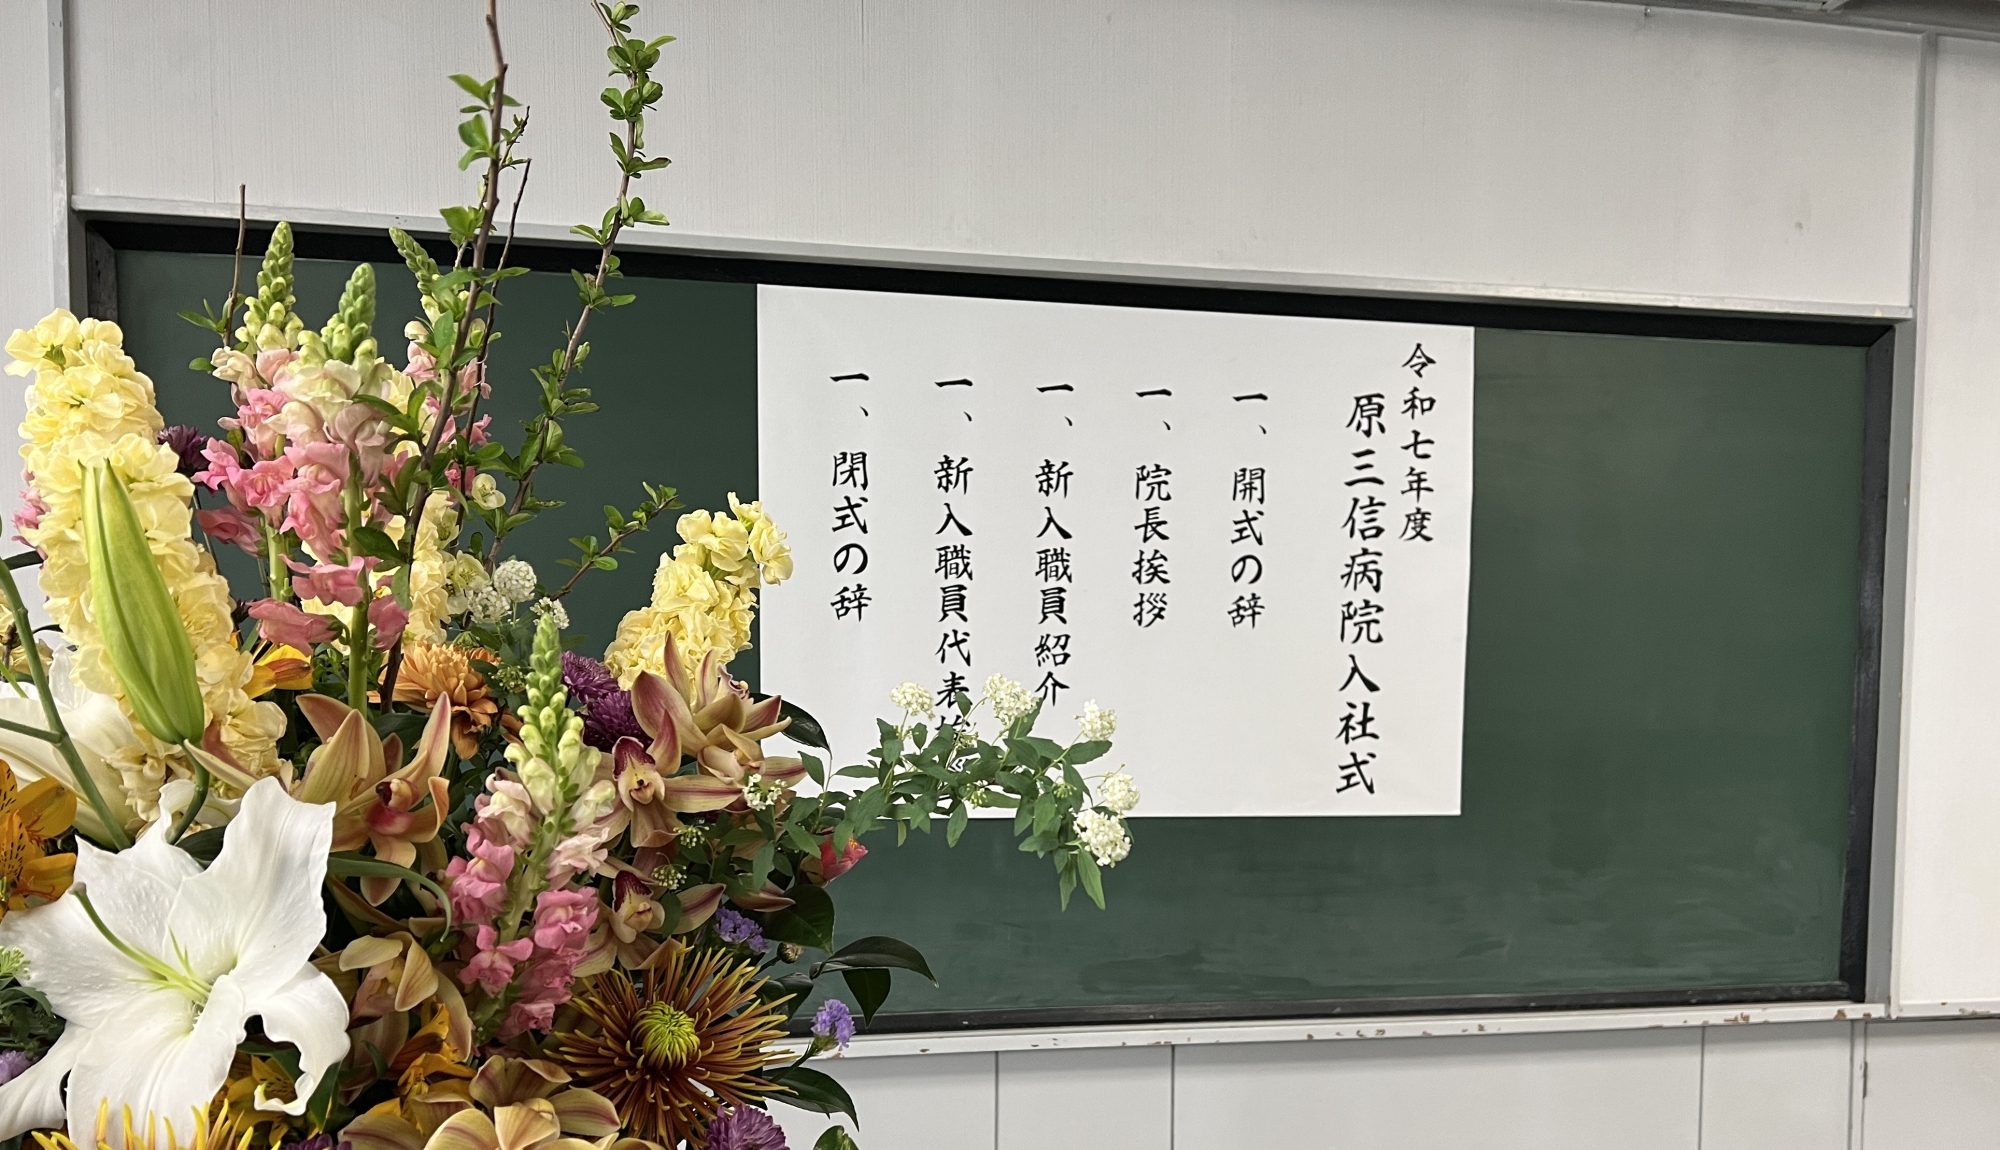 令和七年度
原三信病院入社式
一、開式の辞
一、院長挨拶
一、新入職員紹介
一、新入職員代表
一、閉式の辞